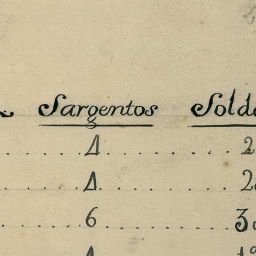 Sargentos Sold
4 2
4 2
6 3
4